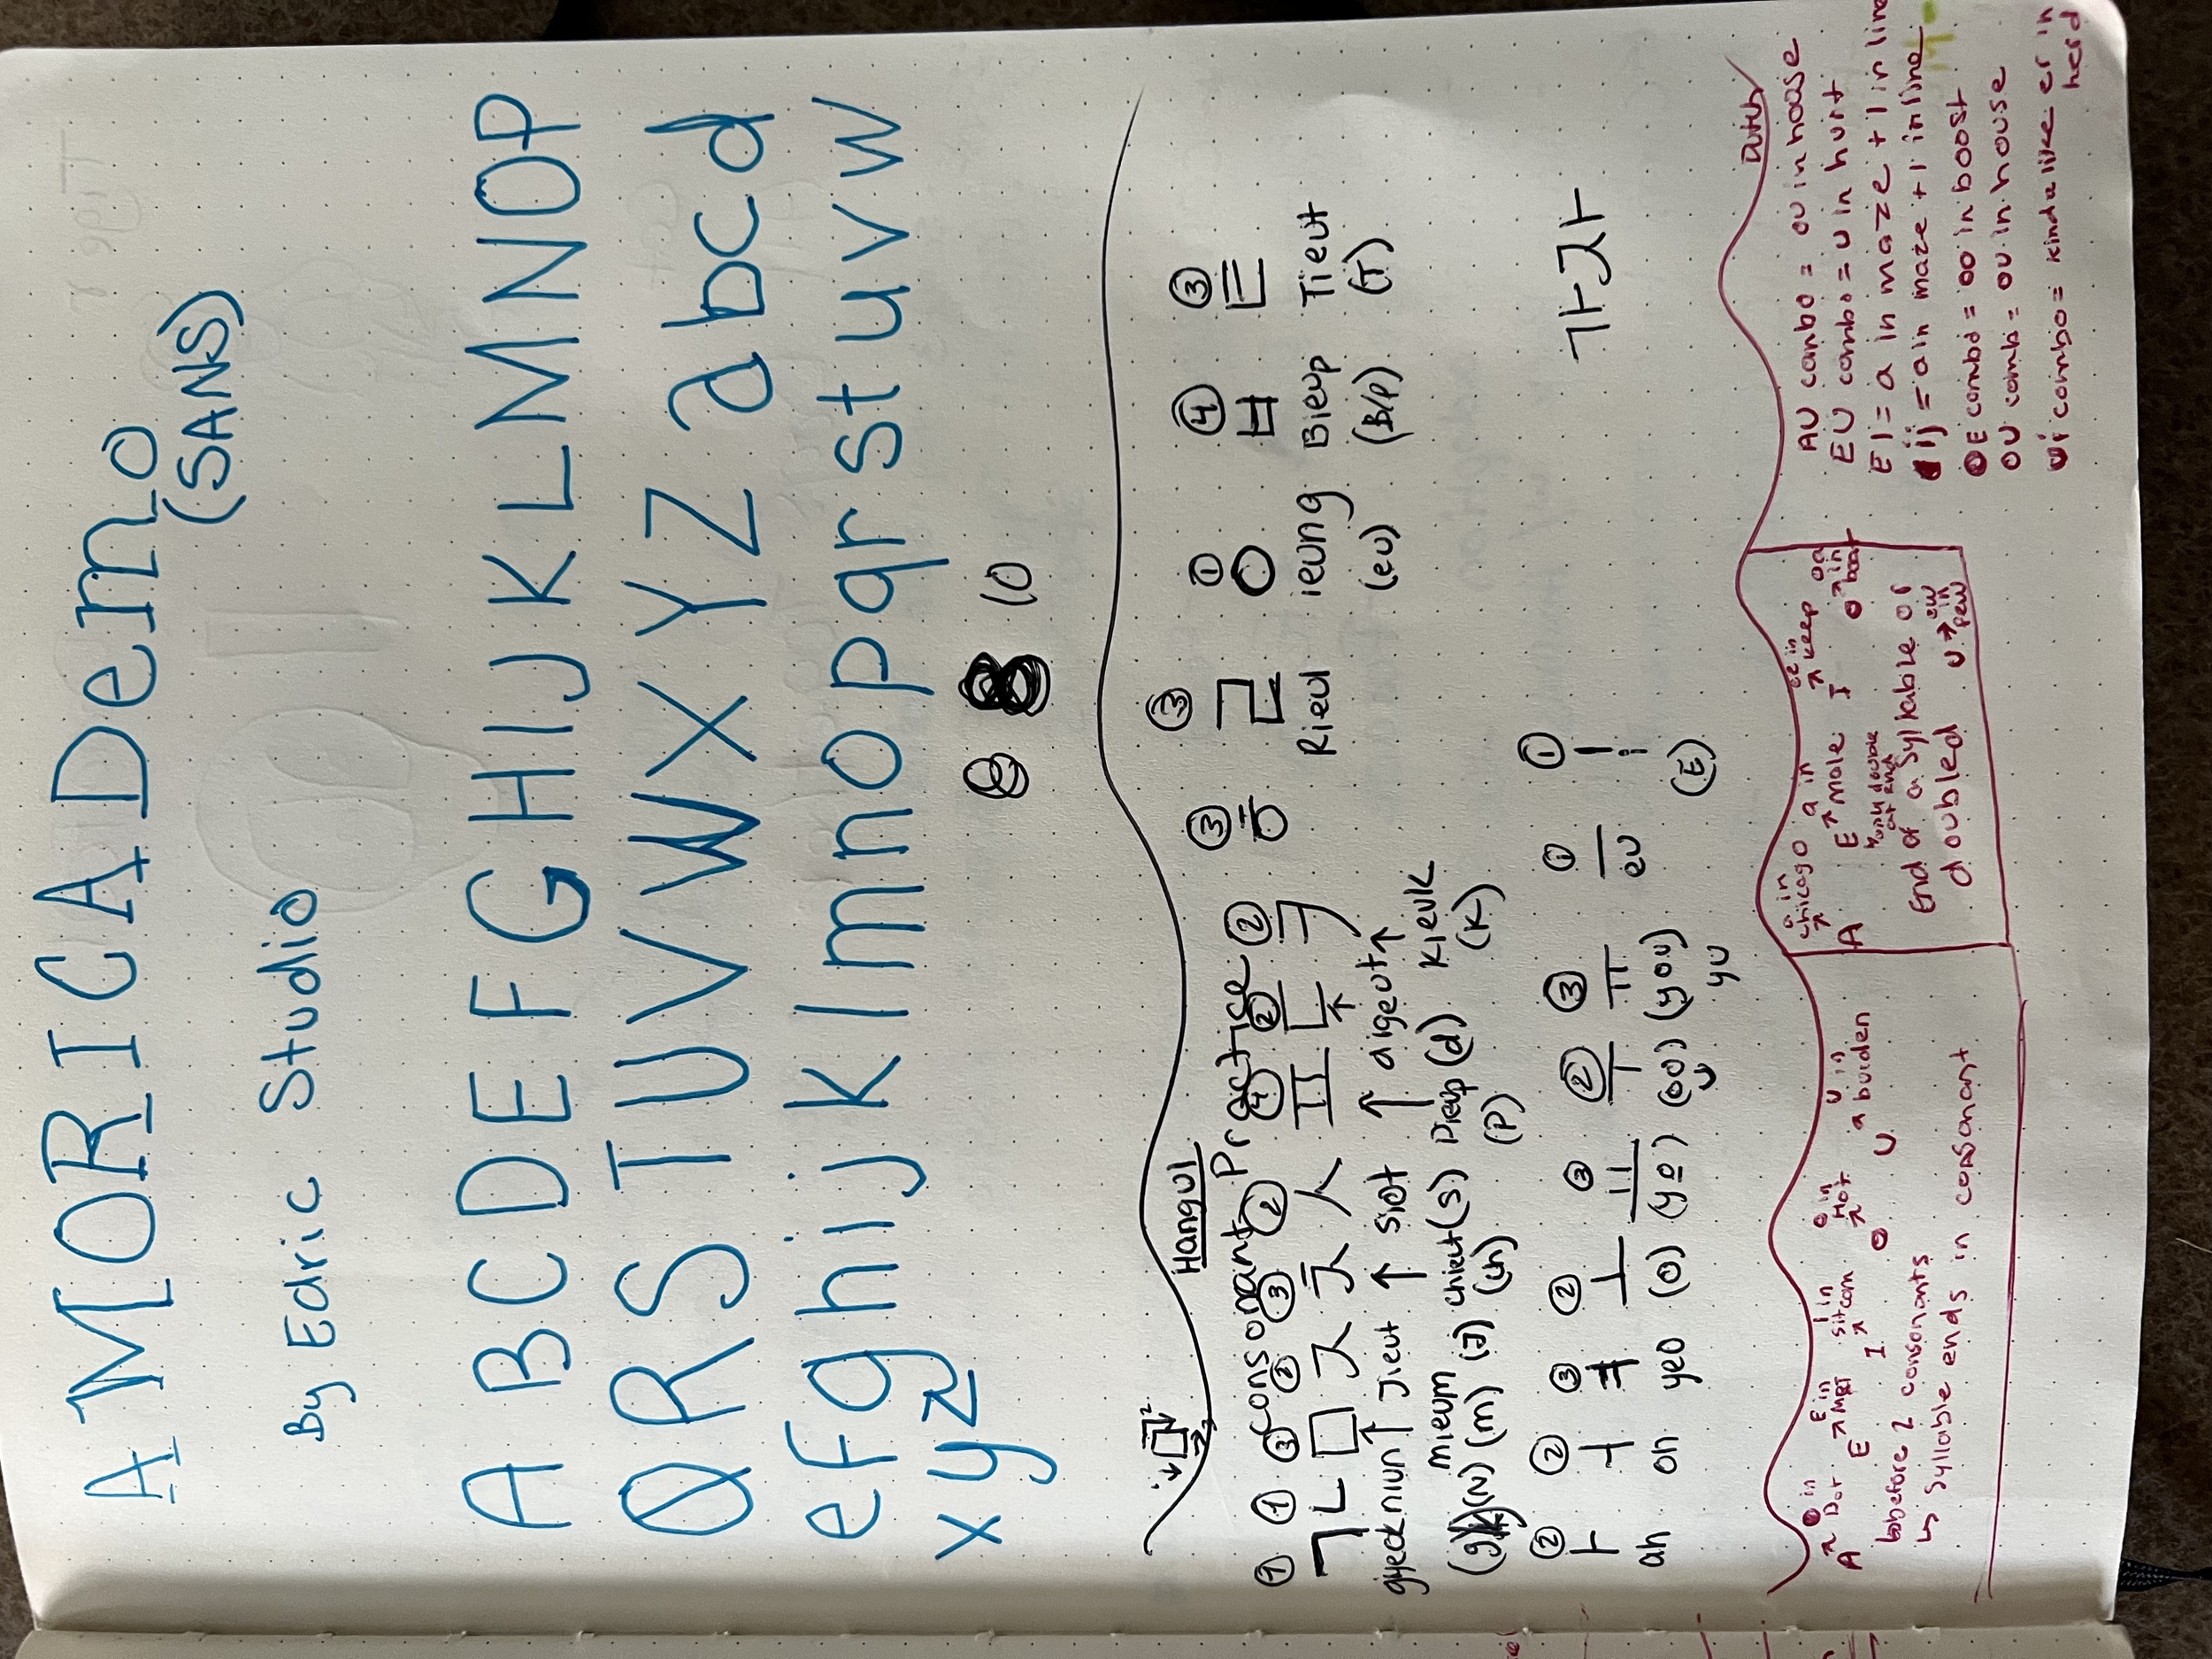 AMORICA Demo
(SANS)
By Edric Studio
A B C D E F G H I J K L M N O P
Q R S T U V W X Y Z a b c d
e f g h i j k l m n o p q r s t u v w
x y z
8 8 10
Hangul
Consonant Practice
① ① ③ ② ③ ② ④ ② ② ③ ③ ① ④ ③
ㄱ ㄴ ㅁ ㅈ ㅊ ㅅ ㅍ ㄷ ㅋ ㅎ ㄹ ㅇ ㅂ ㅌ
gyeok niun ↑ Jieut ↑ siot ↑ digeut↑ Kieuk Rieul ieung Bieup Tieut
mieum (eu) (B/P) (T)
(N) (m) (J) chieut (s) Pieup (d) (K)
(ch) (P)
② ② ③ ② ③ ② ③ ① ①
ㅏ ㅓ ㅕ ㅗ ㅛ ㅜ ㅠ ㅡ ㅣ 가갸
ah oh yeo (o) (yo) (oo) (you) eu (E)
u yu
Dutch
A → o in Dot
E → E in MRT
I → i in sitcom
O → o in Hot
U → u in a burden
before 2 consonants
↳ syllable ends in consonant
A → a in chicago
E → a in male
only double at end
I → ee in keep
O → oa in boat
U → ew in pew
End of a syllable or
doubled
AU combo = ou in house
EU combo = u in hurt
EI = a in maze + I in line
ij = a in maze + I in line
OE combo = oo in boost
OU comb = ou in house
ui combo = kinda like er in
herd